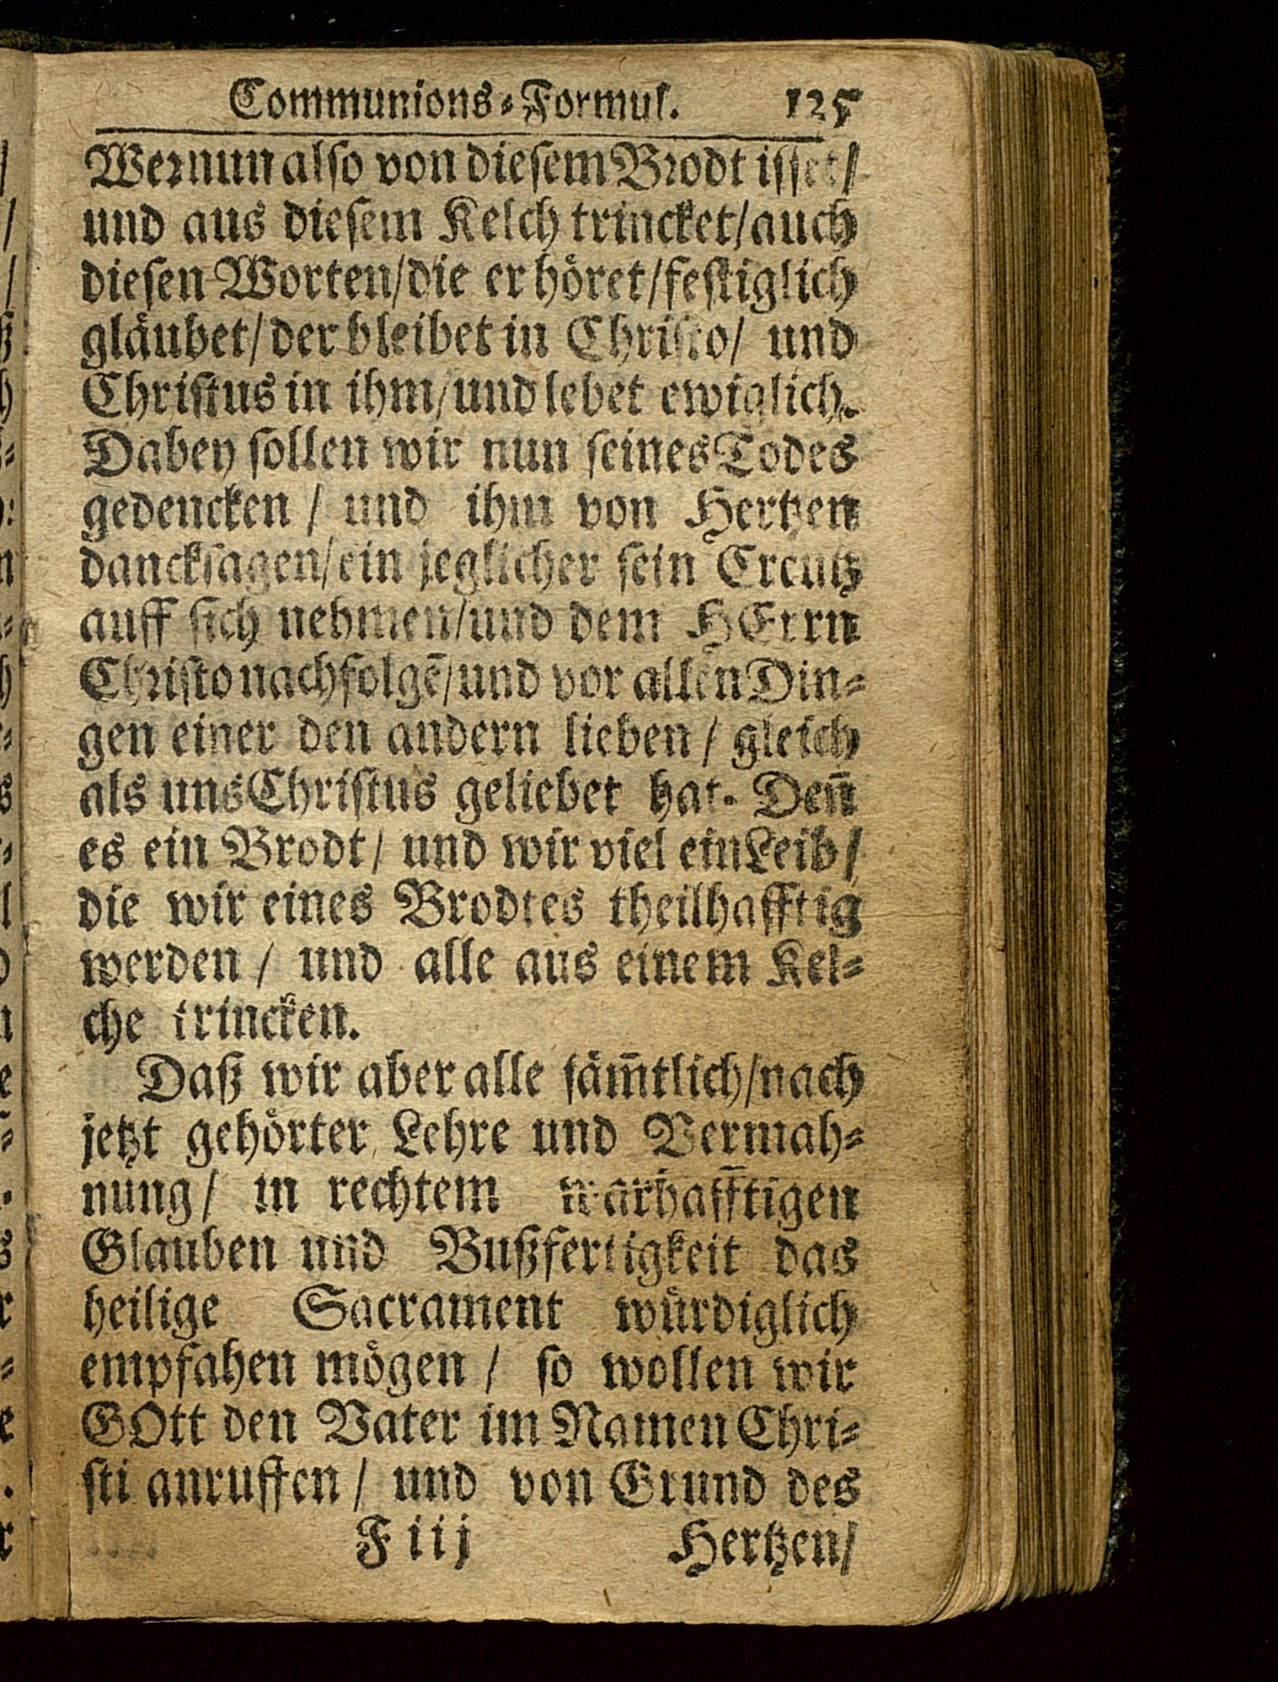 Communions-Formul. 125
Wer nun also von diesem Brodt isset/
und aus diesem Kelch trincket/auch
diesen Worten/die er höret/festiglich
gläubet/der bleibet in Christo/ und
Christus in ihm/und lebet ewiglich.
Dabey sollen wir nun seines Todes
gedencken / und ihm von Hertzen
dancksagen/ein jeglicher sein Creutz
auff sich nehmen/und dem HErrn
Christo nachfolgē/und vor allen Din-
gen einer den andern lieben / gleich
als uns Christus geliebet hat. Den̄
es ein Brodt/ und wir viel ein Leib/
die wir eines Brodtes theilhafftig
werden / und alle aus einem Kel-
che trincken.
Daß wir aber alle säm̄tlich/nach
jetzt gehörter Lehre und Vermah-
nung/ in rechtem warhafftigen
Glauben und Bußfertigkeit das
heilige Sacrament würdiglich
empfahen mögen / so wollen wir
GOtt den Vater im Namen Chri-
sti anruffen/ und von Grund des
F iij Hertzen/